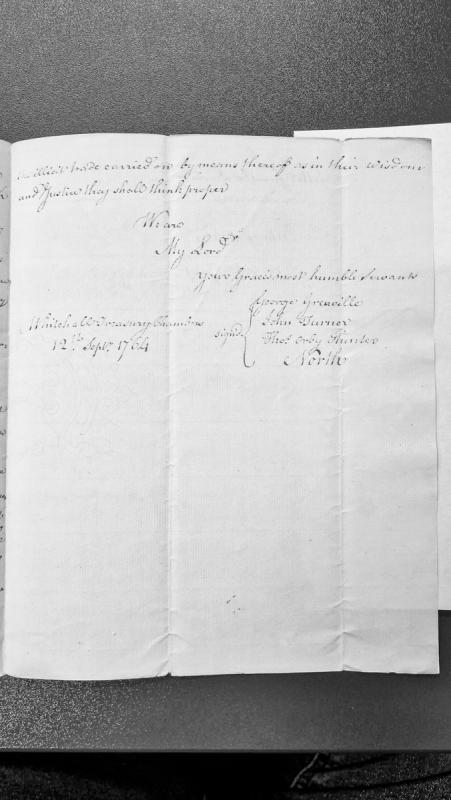 illicit trade carried on by means thereof as in their Wisdom
and Justice they shall think proper
We are
My Lord
Your Grace's most humble Servants
George Grenville
Whitehall Treasury Chambers
signd
John Turner
12th Septr. 1764
Thos. Orby Hunter
North